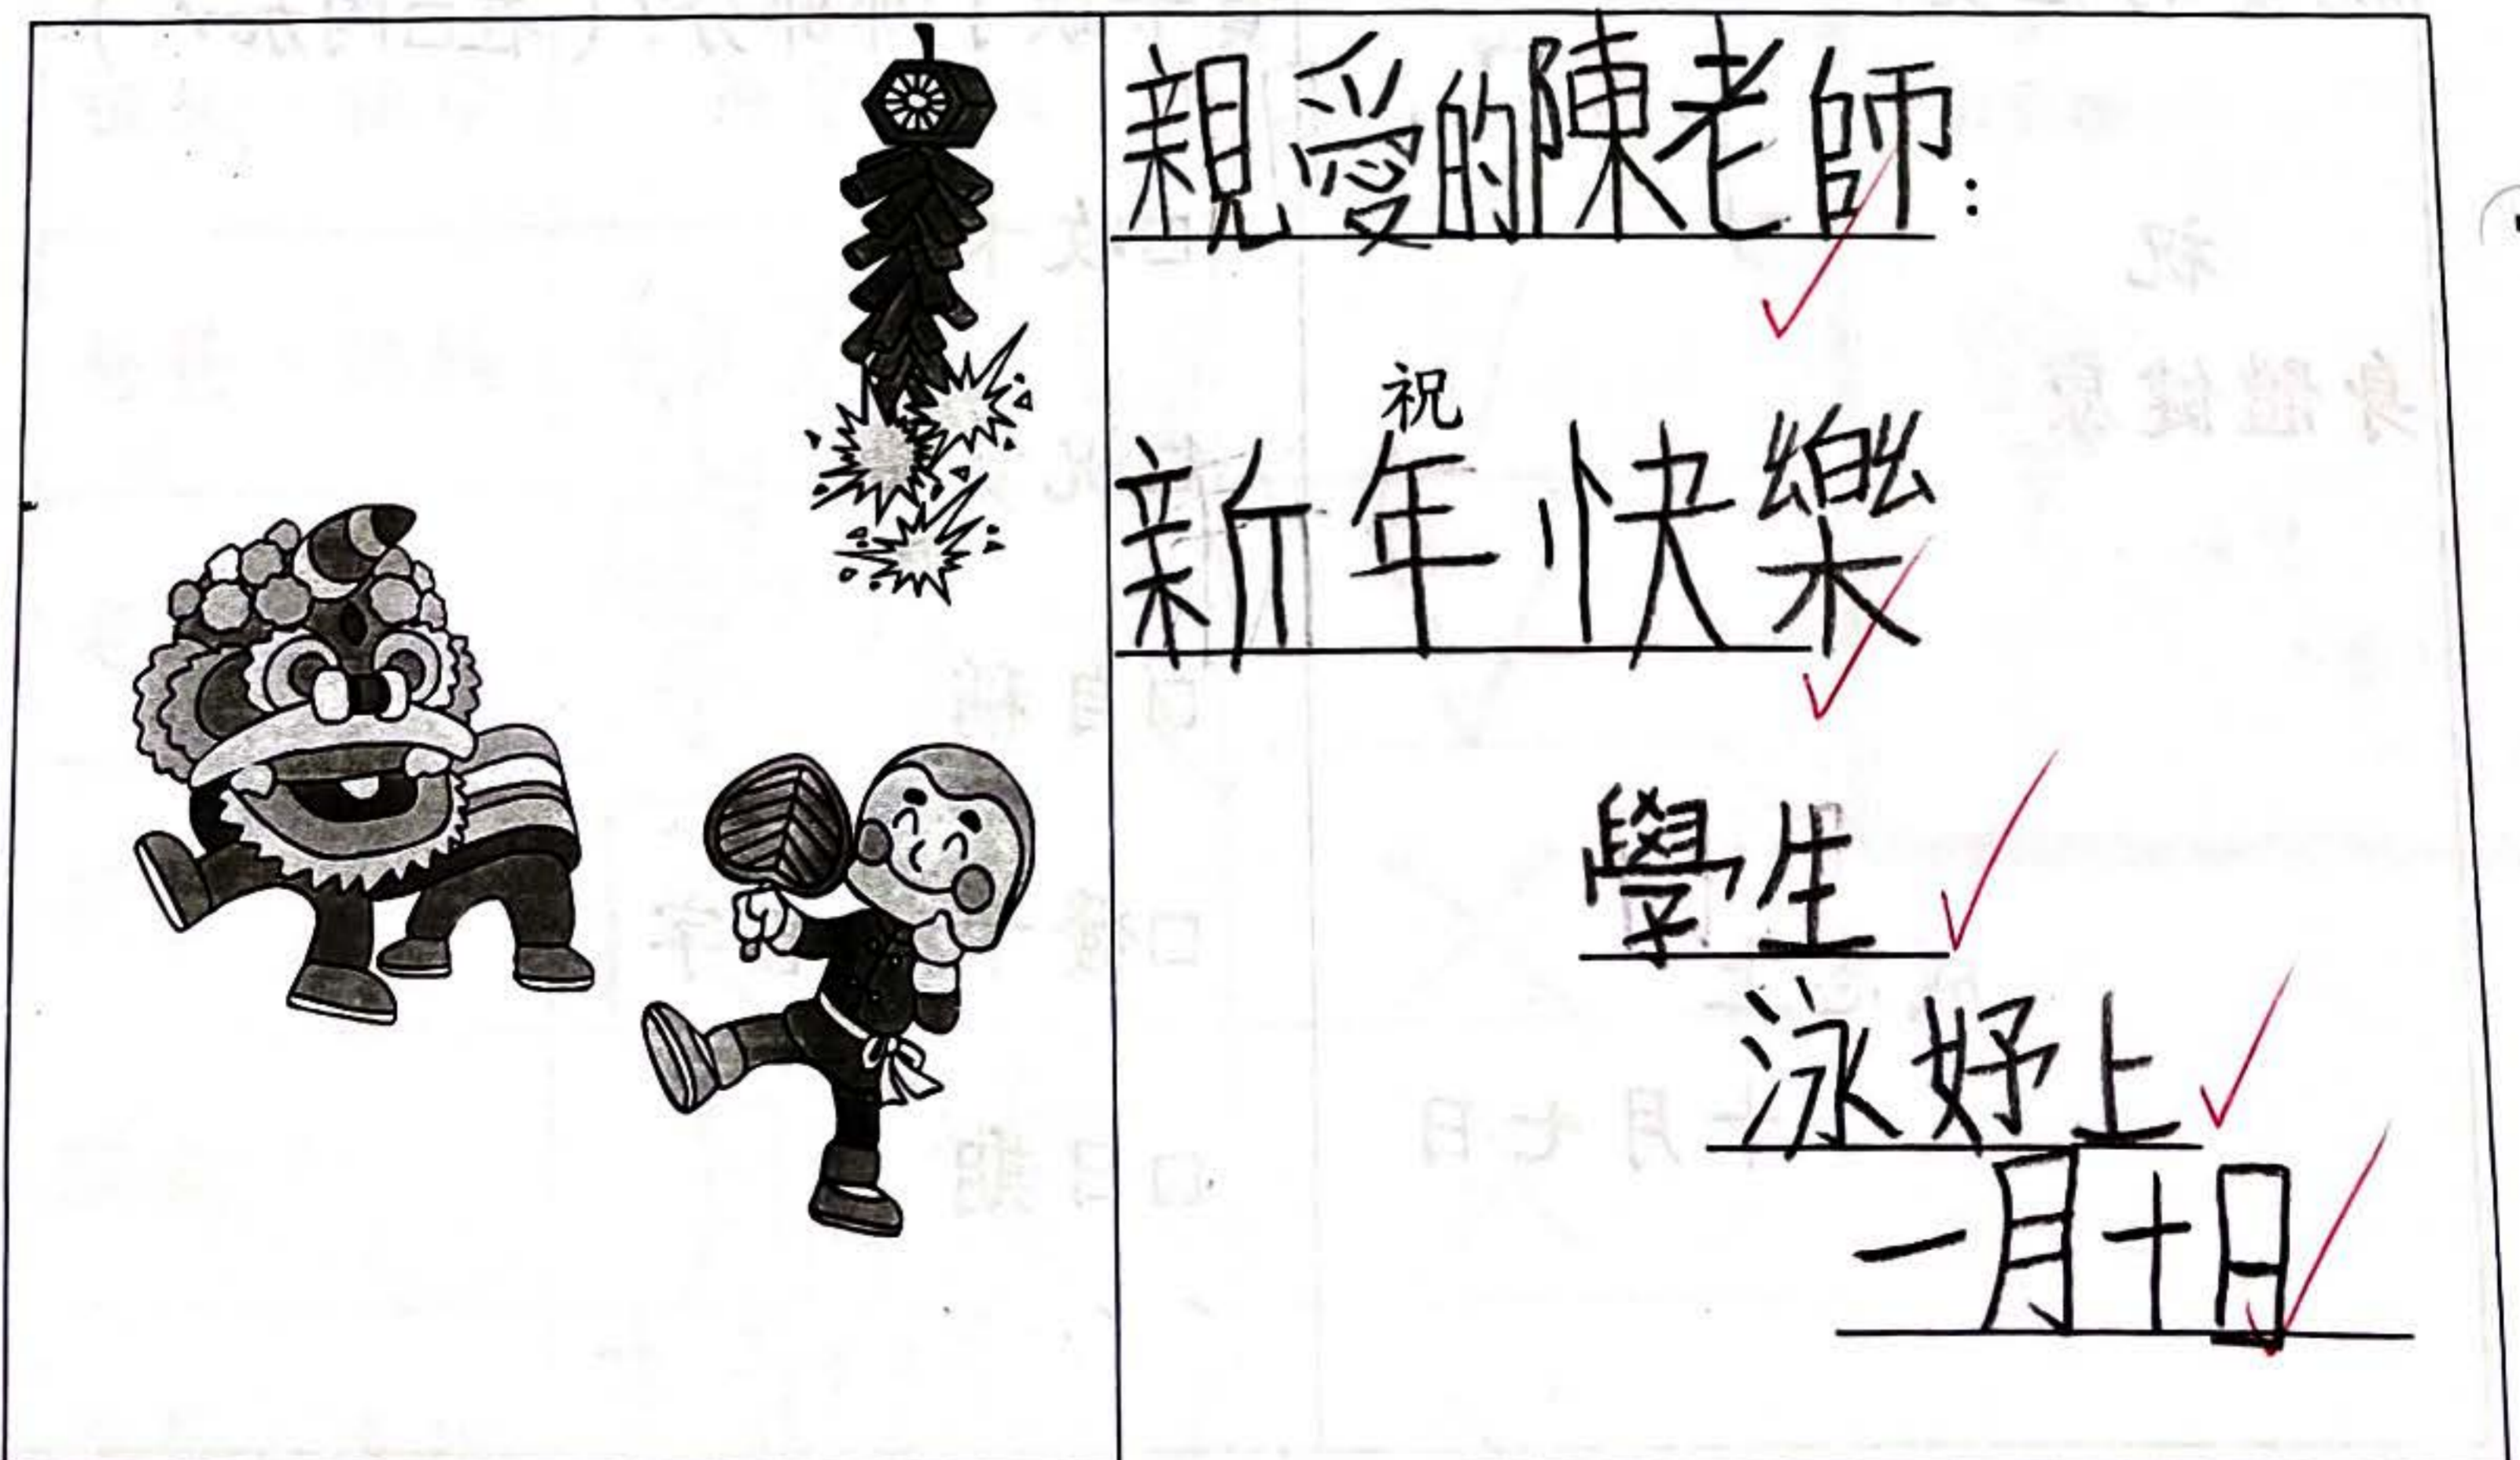 親愛的陳老師：
祝
新年快樂
學生
泳妤上
一月十日